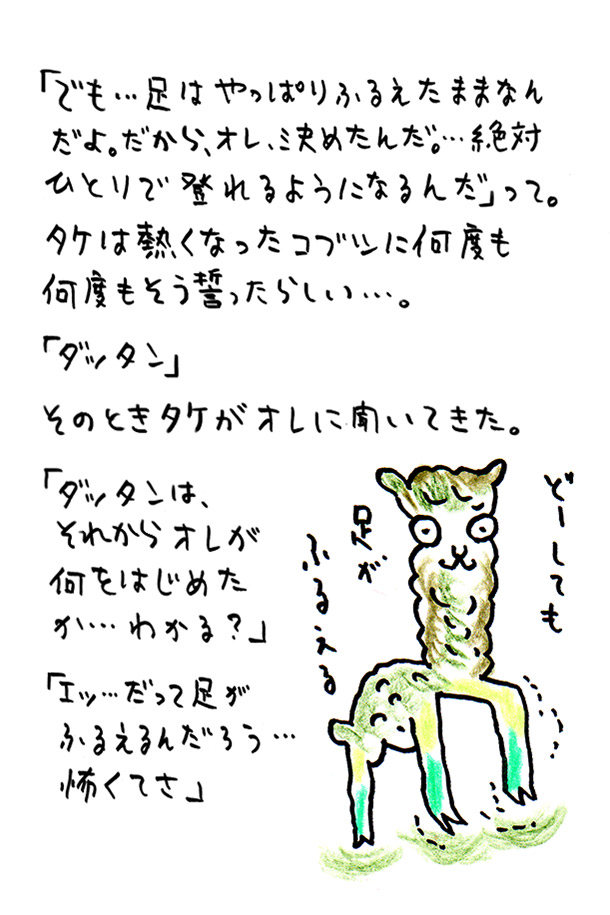 「でも…足はやっぱりふるえたままなん
だよ。だから、オレ、決めたんだ。…絶対
ひとりで登れるようになるんだ」って。
タケは熱くなったコブシに何度も
何度もそう誓ったらしい…。
「ダッタン」
そのときタケがオレに聞いてきた。
「ダッタンは、
それからオレが
何をはじめた
か…わかる?」
「エッ…だって足が
ふるえるんだろう…
怖くてさ」
どーしても
足が
ふるえる